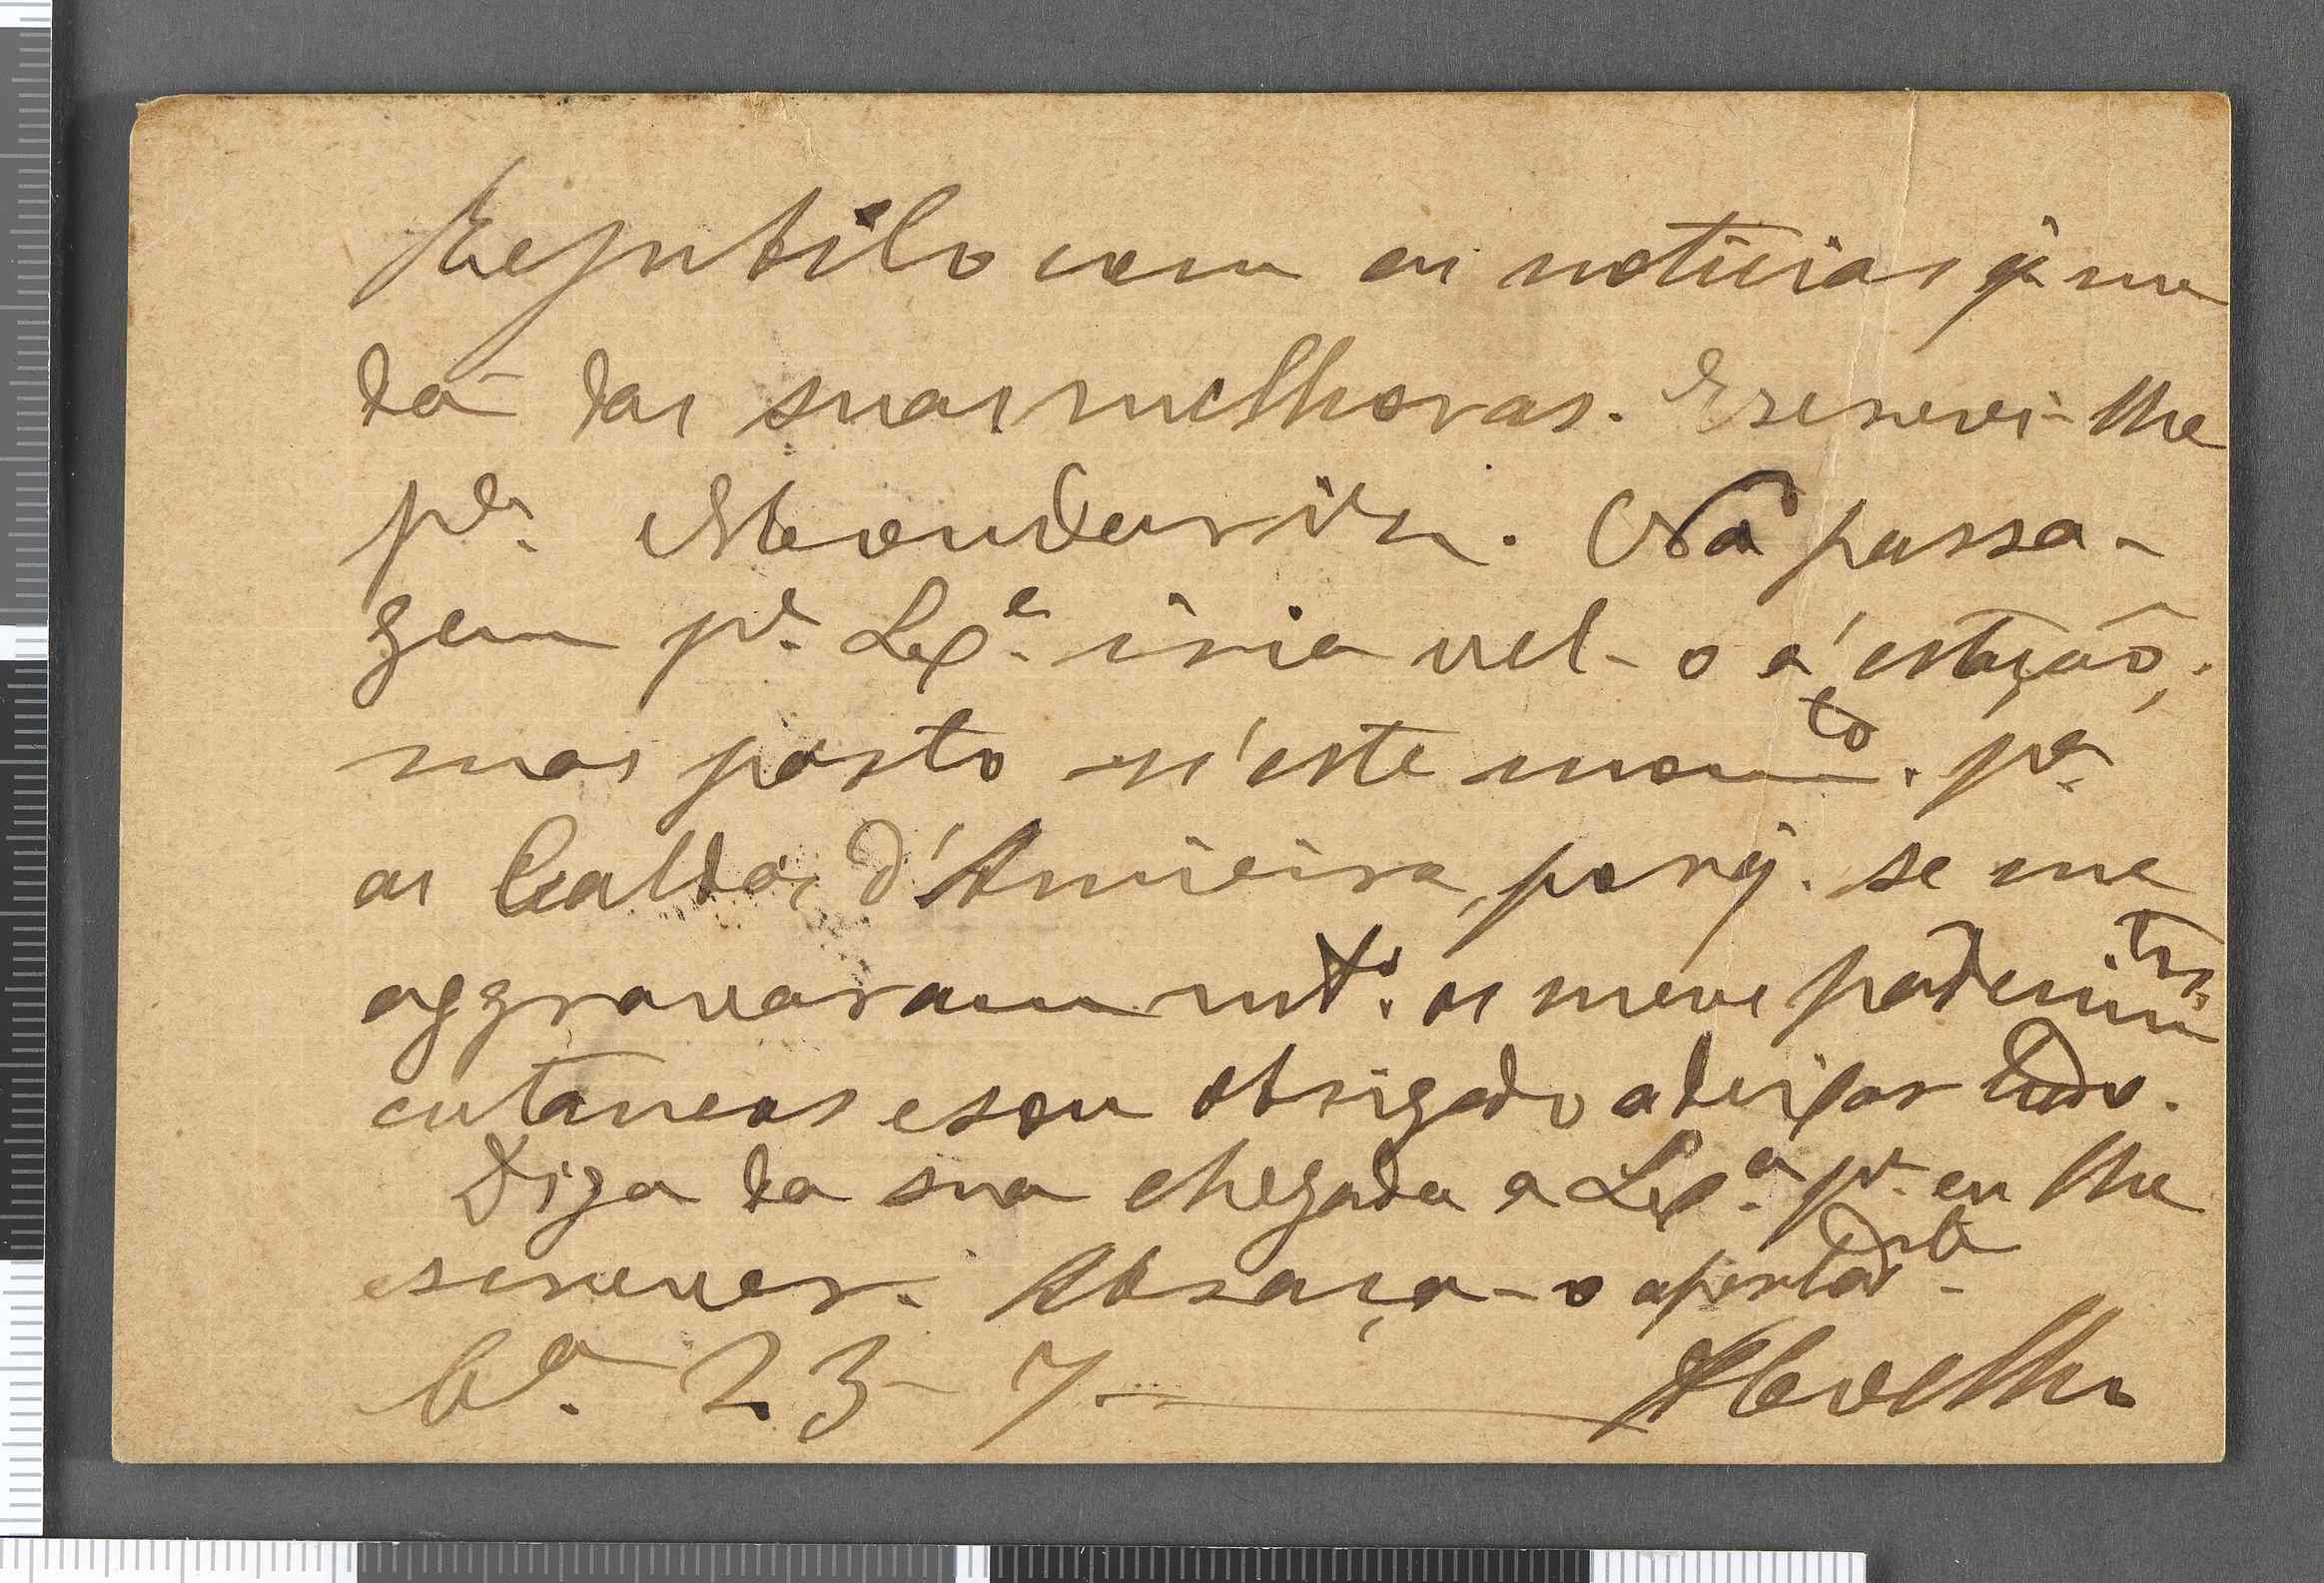 Rejubilo com as noticias q. me
dá das suas melhoras. Escrevi-lhe
pª. Mondariz. Na passa-
gem pª. Lxª. iria vel-o á estação,
mas parto n'este momto. pª
as Caldas d'Amieira, porq. se me
aggravaram mtº. os meus padecimtos.
cutaneos e sou obrigado a deixar tudo.
Diga da sua chegada a Lxª. pª eu lhe
escrever. Abraça-o apertadte.
Cª. 23-7- ACoelho